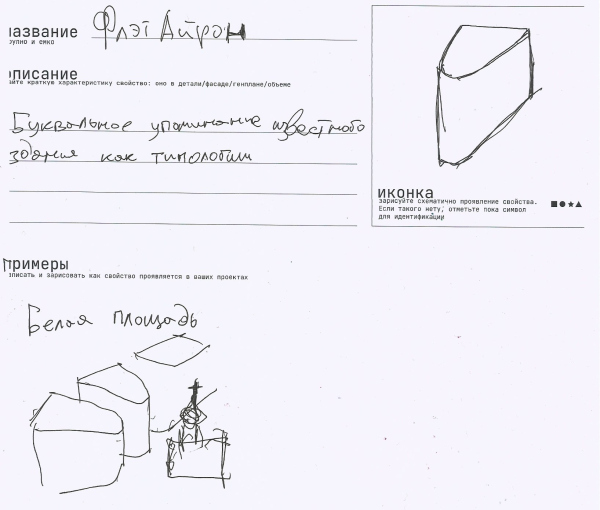 название Флэт Айрон
крупно и емко
описание
дайте краткую характеристику свойство: оно в детали/фасаде/генплане/объеме
Буквальное упоминание известного
здания как типологии
иконка
зарисуйте схематично проявление свойства.
Если такого нету, отметьте пока символ
для идентификации
примеры
описать и зарисовать как свойство проявляется в ваших проектах
Белая площадь